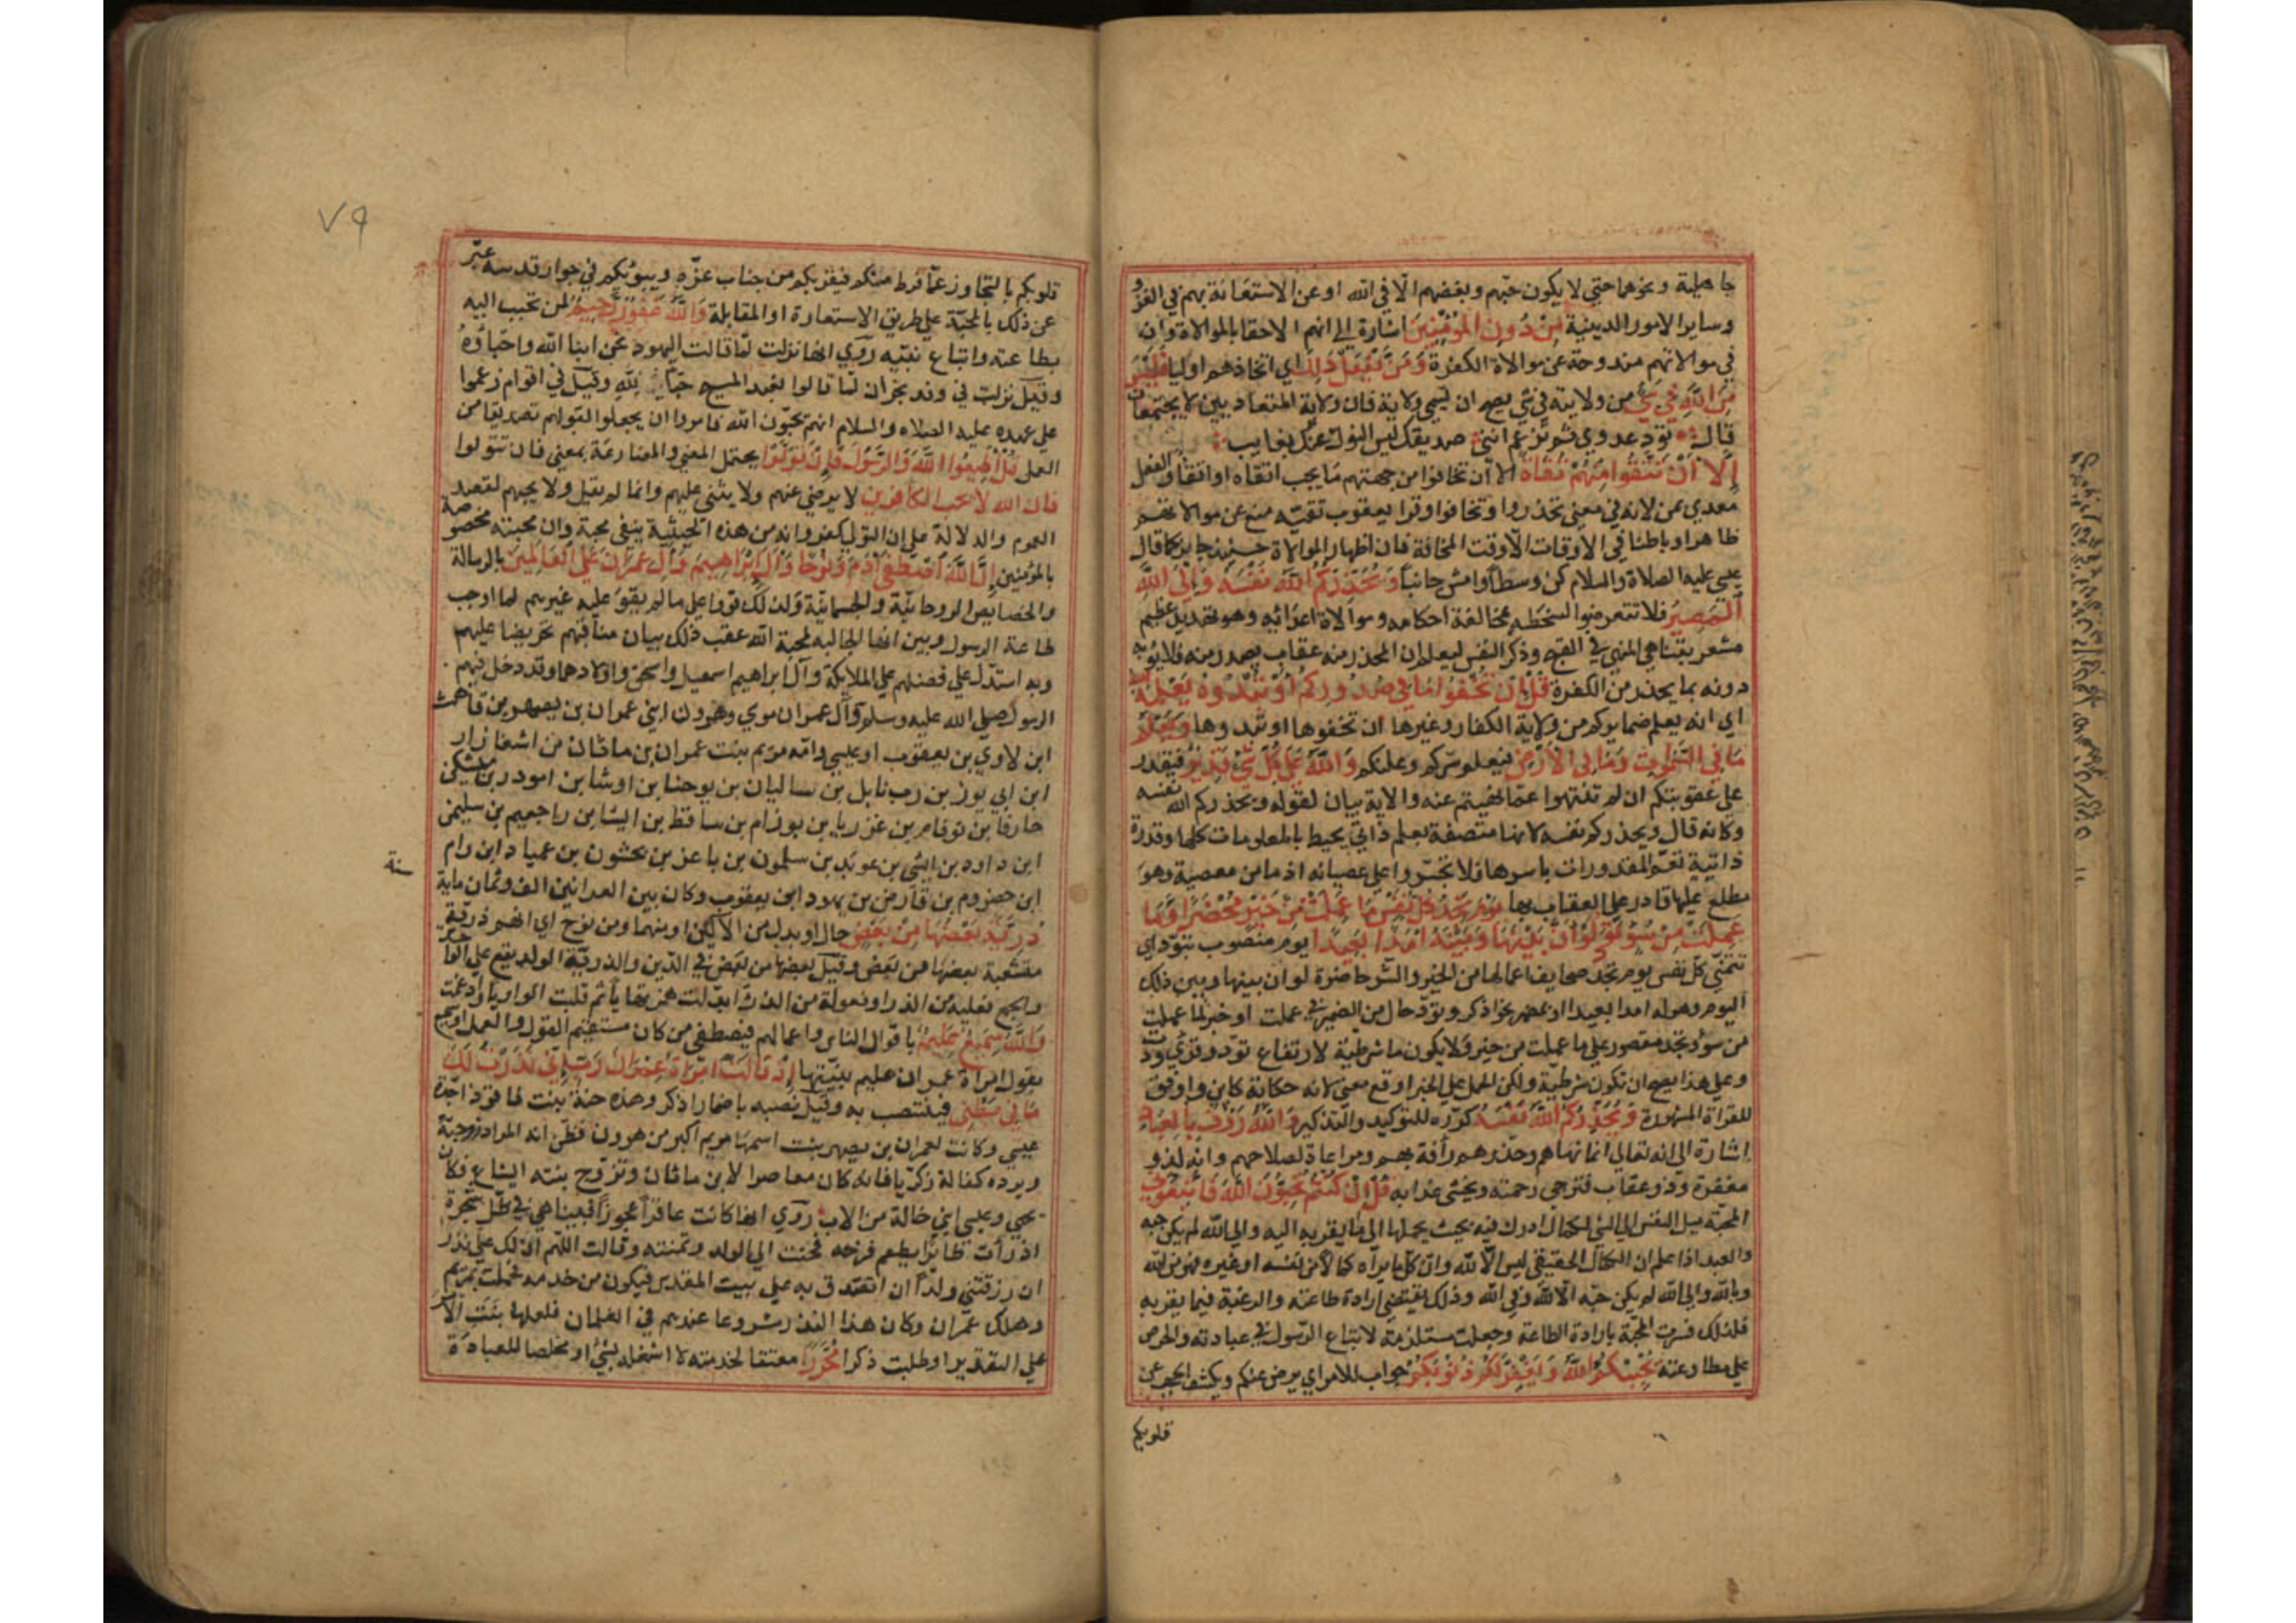 جاهلية ونحوهما حتي لا يكون حبهم وبغضهم الا في الله او عن الاستعانة بهم في الغزو
وساير الامور الدينية من دون المؤمنين اشارة الي انهم الاحقا بالموالاة وان
في موالاتهم مندوحة عن موالاة الكفرة ومن يفعل ذلك اي اتخاذهم اوليا فليس
من الله في شئ من ولايته في شئ يصح ان يسمي ولاية فان ولاية المتعاديين لا يجتمعان
قال تود عدوي ثم تزعم انني صديقك ليس النوك عنك بعايب
الا ان تتقوا منهم تقاة الا ان تخافوا من جهتهم ما يجب اتقاه او اتقا والفعل
معدي بمن لانه في معني تحذروا وتخافوا وقرا يعقوب تقية منع عن موالاتهم
ظاهرا وباطنا في الاوقات الا وقت المخافة فان اظهار الموالاة حينيذ جايز كما قال
عيسي عليه الصلاة والسلام كن وسطا وامش جانبا ويحذركم الله نفسه والي الله
المصير فلا تتعرضوا لسخطه بمخالفة احكامه وموالاة اعدايه وهو تهديد عظيم
مشعر بتناهي المنهي في القبح وذكر النفس ليعلم ان المحذر منه عقاب يصدر منه فلا يوبه
دونه بما يحذر من الكفرة قل ان تخفوا ما في صدوركم او تبدوه يعلمه الله
اي انه يعلم ضمايركم من ولاية الكفار وغيرها ان تخفوها او تبدوها ويعلم
ما في السموات وما في الارض فيعلم سركم وعلنكم والله علي كل شئ قدير فيقدر
علي عقوبتكم ان لم تنتهوا عما نهيتم عنه والاية بيان لقوله ويحذركم الله نفسه
وكانه قال ويحذركم نفسه لانها متصفة بعلم ذاتي يحيط بالمعلومات كلها وقدرة
ذاتية تعم المقدورات باسرها فلا تجسروا علي عصيانه اذ ما من معصية وهو
مطلع عليها قادر علي العقاب بها يوم تجد كل نفس ما عملت من خير محضرا وما
عملت من سوء تود لو ان بينها وبينه امدا بعيدا يوم منصوب بتود اي
تتمني كل نفس يوم تجد صحايف اعمالها من الخير والشر حاضرة لو ان بينها وبين ذلك
اليوم وهوله امدا بعيدا او بمضمر نحو اذكر وتود حال من الضمير في عملت او خبر لما عملت
من سوء وتجد مقصور علي ما عملت من خير ولا يكون ما شرطية لارتفاع تود وقري ودت
وعلي هذا يصح ان تكون شرطية ولكن الحمل علي الخبر اوقع معني لانه حكاية كاين واوفق
للقراة المشهورة ويحذركم الله نفسه كرره للتوكيد والتذكير والله رؤف بالعباد
اشارة الي انه تعالي انما نهاهم وحذرهم رأفة بهم ومراعاة لصلاحهم وانه لذو
مغفرة وذو عقاب فترجي رحمته ويخشي عذابه قل ان كنتم تحبون الله فاتبعوني
المحبة ميل النفس الي الشئ لكمال ادرك فيه بحيث يحملها الي ما يقربه اليه والي الله لم يكن حبه
والعبد اذا علم ان الكمال الحقيقي ليس الا لله وان كل ما يراه كمالا من نفسه او غيره فهو من الله
وبالله والي الله لم يكن حبه الا لله وفي الله وذلك يقتضي ارادة طاعته والرغبة فيما يقربه
فلذلك فسرت المحبة بارادة الطاعة وجعلت مستلزمة لاتباع الرسول في عبادته والحرص
علي مطاوعته يحببكم الله ويغفر لكم ذنوبكم جواب للامر اي يرض عنكم ويكشف الحجب عن
قلوبكم
٧٩
قلوبكم بالتجاوز عما فرط منكم فيقربكم من جناب عزه ويبوئكم في جوار قدسه عبر
عن ذلك بالمحبة علي طريق الاستعارة او المقابلة والله غفور رحيم لمن تحبب اليه
بطاعته واتباع نبيه روي انها نزلت لما قالت اليهود نحن ابنا الله واحباؤه
وقيل نزلت في وفد نجران لما قالوا نعبد المسيح حبا لله وقيل في اقوام زعموا
علي عهده عليه الصلاه والسلام انهم يحبون الله فامروا ان يجعلوا لقولهم تصديقا من
العمل قل اطيعوا الله والرسول فان تولوا يحتمل المضي والمضارعة بمعني فان تتولوا
فان الله لا يحب الكافرين لا يرضي عنهم ولا يثني عليهم وانما لم يقل ولا يحبهم لقصد
العموم والدلالة علي ان التولي كفر وانه من هذه الحيثية ينفي محبة وان محبته مخصوصة
بالمؤمنين ان الله اصطفي ادم ونوحا وال ابراهيم وال عمران علي العالمين بالرسالة
والخصايص الروحانية والجسمانية ولذلك قووا علي ما لم يقو عليه غيرهم لما اوجب
طاعة الرسول وبين انها الجالبة لمحبة الله عقب ذلك ببيان مناقبهم تحريضا عليهم
وبه استدل علي فضلهم علي الملايكة وال ابراهيم اسمعيل واسحق واولادهما وقد دخل فيهم
الرسول صلي الله عليه وسلم وال عمران موسي وهرون ابني عمران بن يصهر بن قاهث
ابن لاوي بن يعقوب او عيسي وامه مريم بنت عمران بن ماثان من اشعازار
ابن ابي يوز بن رب بابل بن ساليان بن يوحنا بن اوشا بن امودر بن مشكي
حارقا بن توفام بن عزريا بن يوزام بن ساقط بن ايشا بن راجعيم بن سليمن
ابن داود بن ايشي بن عوبد بن سلمون بن باعز بن بحشون بن عمياد ابن رام
ابن حضروم بن فارص بن يهود ابن يعقوب وكان بين العمرانين الف وثمان ماية
سنة
ذرية بعضها من بعض حال او بدل من الآلين او منهما ومن نوح اي انهم ذرية
متشعبة بعضها من بعض وقيل بعضها من بعض في الدين والذرية الولد يقع علي الواحد
والجمع فعلية من الذر او فعولة من الذرأ ابدلت همزتها يأ ثم قلبت الواو يا وادغمت
والله سميع عليم باقوال الناس واعمالهم فيصطفي من كان مستقيم القول والعمل او سميع
بقول امرأة عمران عليم بنيتها اذ قالت امرأة عمران رب اني نذرت لك
ما في بطني فينتصب به وقيل نصبه باضمار اذكر وهذه حنة بنت فاقوذ اجدة
عيسي وكانت لعمران بن يصهر بنت اسمها مريم اكبر من هرون فظن انه المراد وزوجته
ويرده كفالة زكريا فانه كان معاصرا لابن ماثان وتزوج بنته ايشاع فكان
يحيي وعيسي ابني خالة من الاب روي انها كانت عاقرا عجوزا فبينا هي في ظل شجرة
اذ رأت طائرا يطعم فرخه فحنت الي الولد وتمنته وقالت اللهم ان لك علي نذرا
ان رزقتني ولدا ان اتصدق به علي بيت المقدس فيكون من خدمه فحملت بمريم
وهلك عمران وكان هذا النذر مشروعا عندهم في الغلمان فلعلها بنت الامر
علي التقدير او طلبت ذكرا محررا معتقا لخدمته لا اشغله بشئ او مخلصا للعبادة